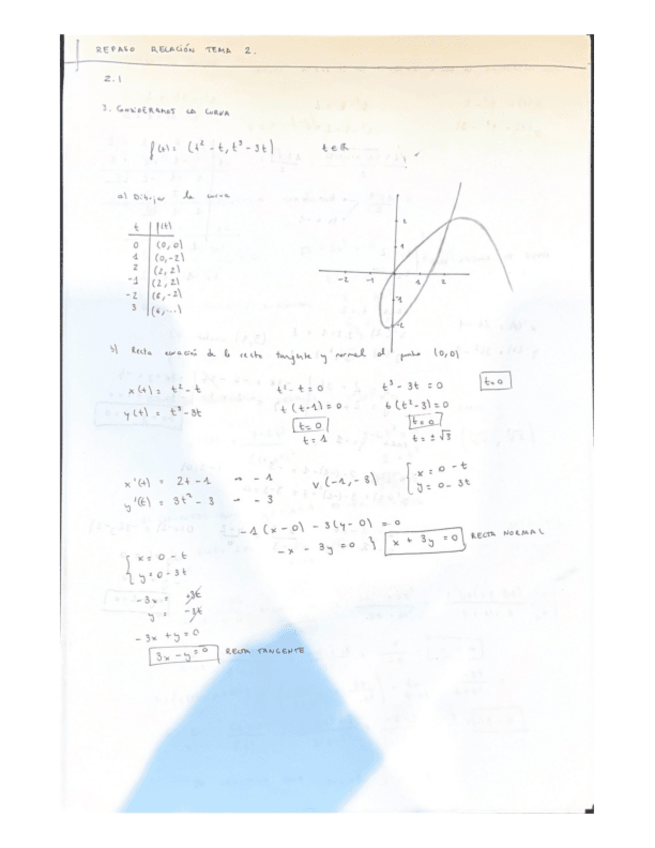 REPASO RELACIÓN TEMA 2.
2.1
3. CONSIDERAMOS LA CURVA
f(t) = (t² - t, t³ - 3t) t ∈ ℝ
a) Dibujar la curva
t | f(t)
0 (0,0)
1 (0,-2)
2 (2,2)
-1 (2,2)
-2 (6,-2)
3 (6,...)
2
1
-2 -1 1 2
-1
-2
b) Recta ecuación de la recta tangente y normal al punto (0,0)
x(t) = t² - t t² - t = 0 t³ - 3t = 0 t=0
y(t) = t³ - 3t t(t-1) = 0 t(t²-3) = 0
t=0 t=0
t=1 t = ±√3
x'(t) = 2t - 1 → -1 v(-1,-3) { x = 0 - t
y'(t) = 3t² - 3 → -3 y = 0 - 3t
-1(x-0) - 3(y-0) = 0
-x - 3y = 0 } x + 3y = 0 RECTA NORMAL
{ x = 0 - t
y = 0 - 3t
-3x = 3t
y = -3t
-3x + y = 0
3x - y = 0 RECTA TANGENTE